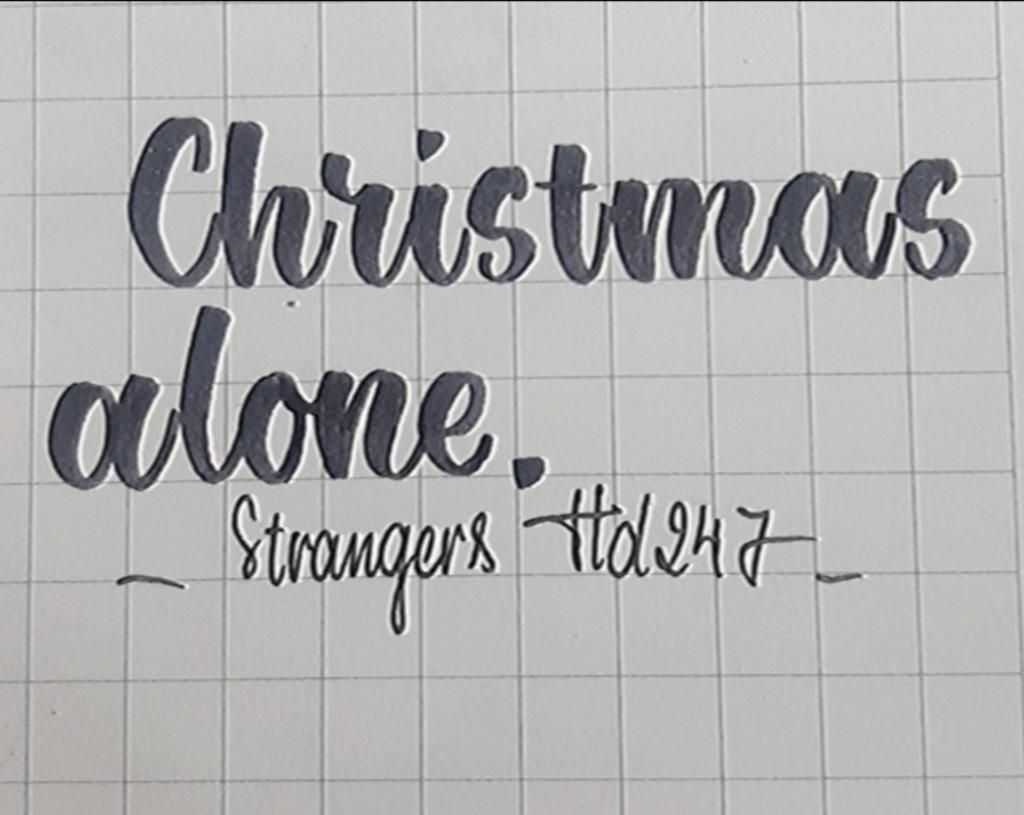 Christmas
alone.
- Strangers Hd247 -